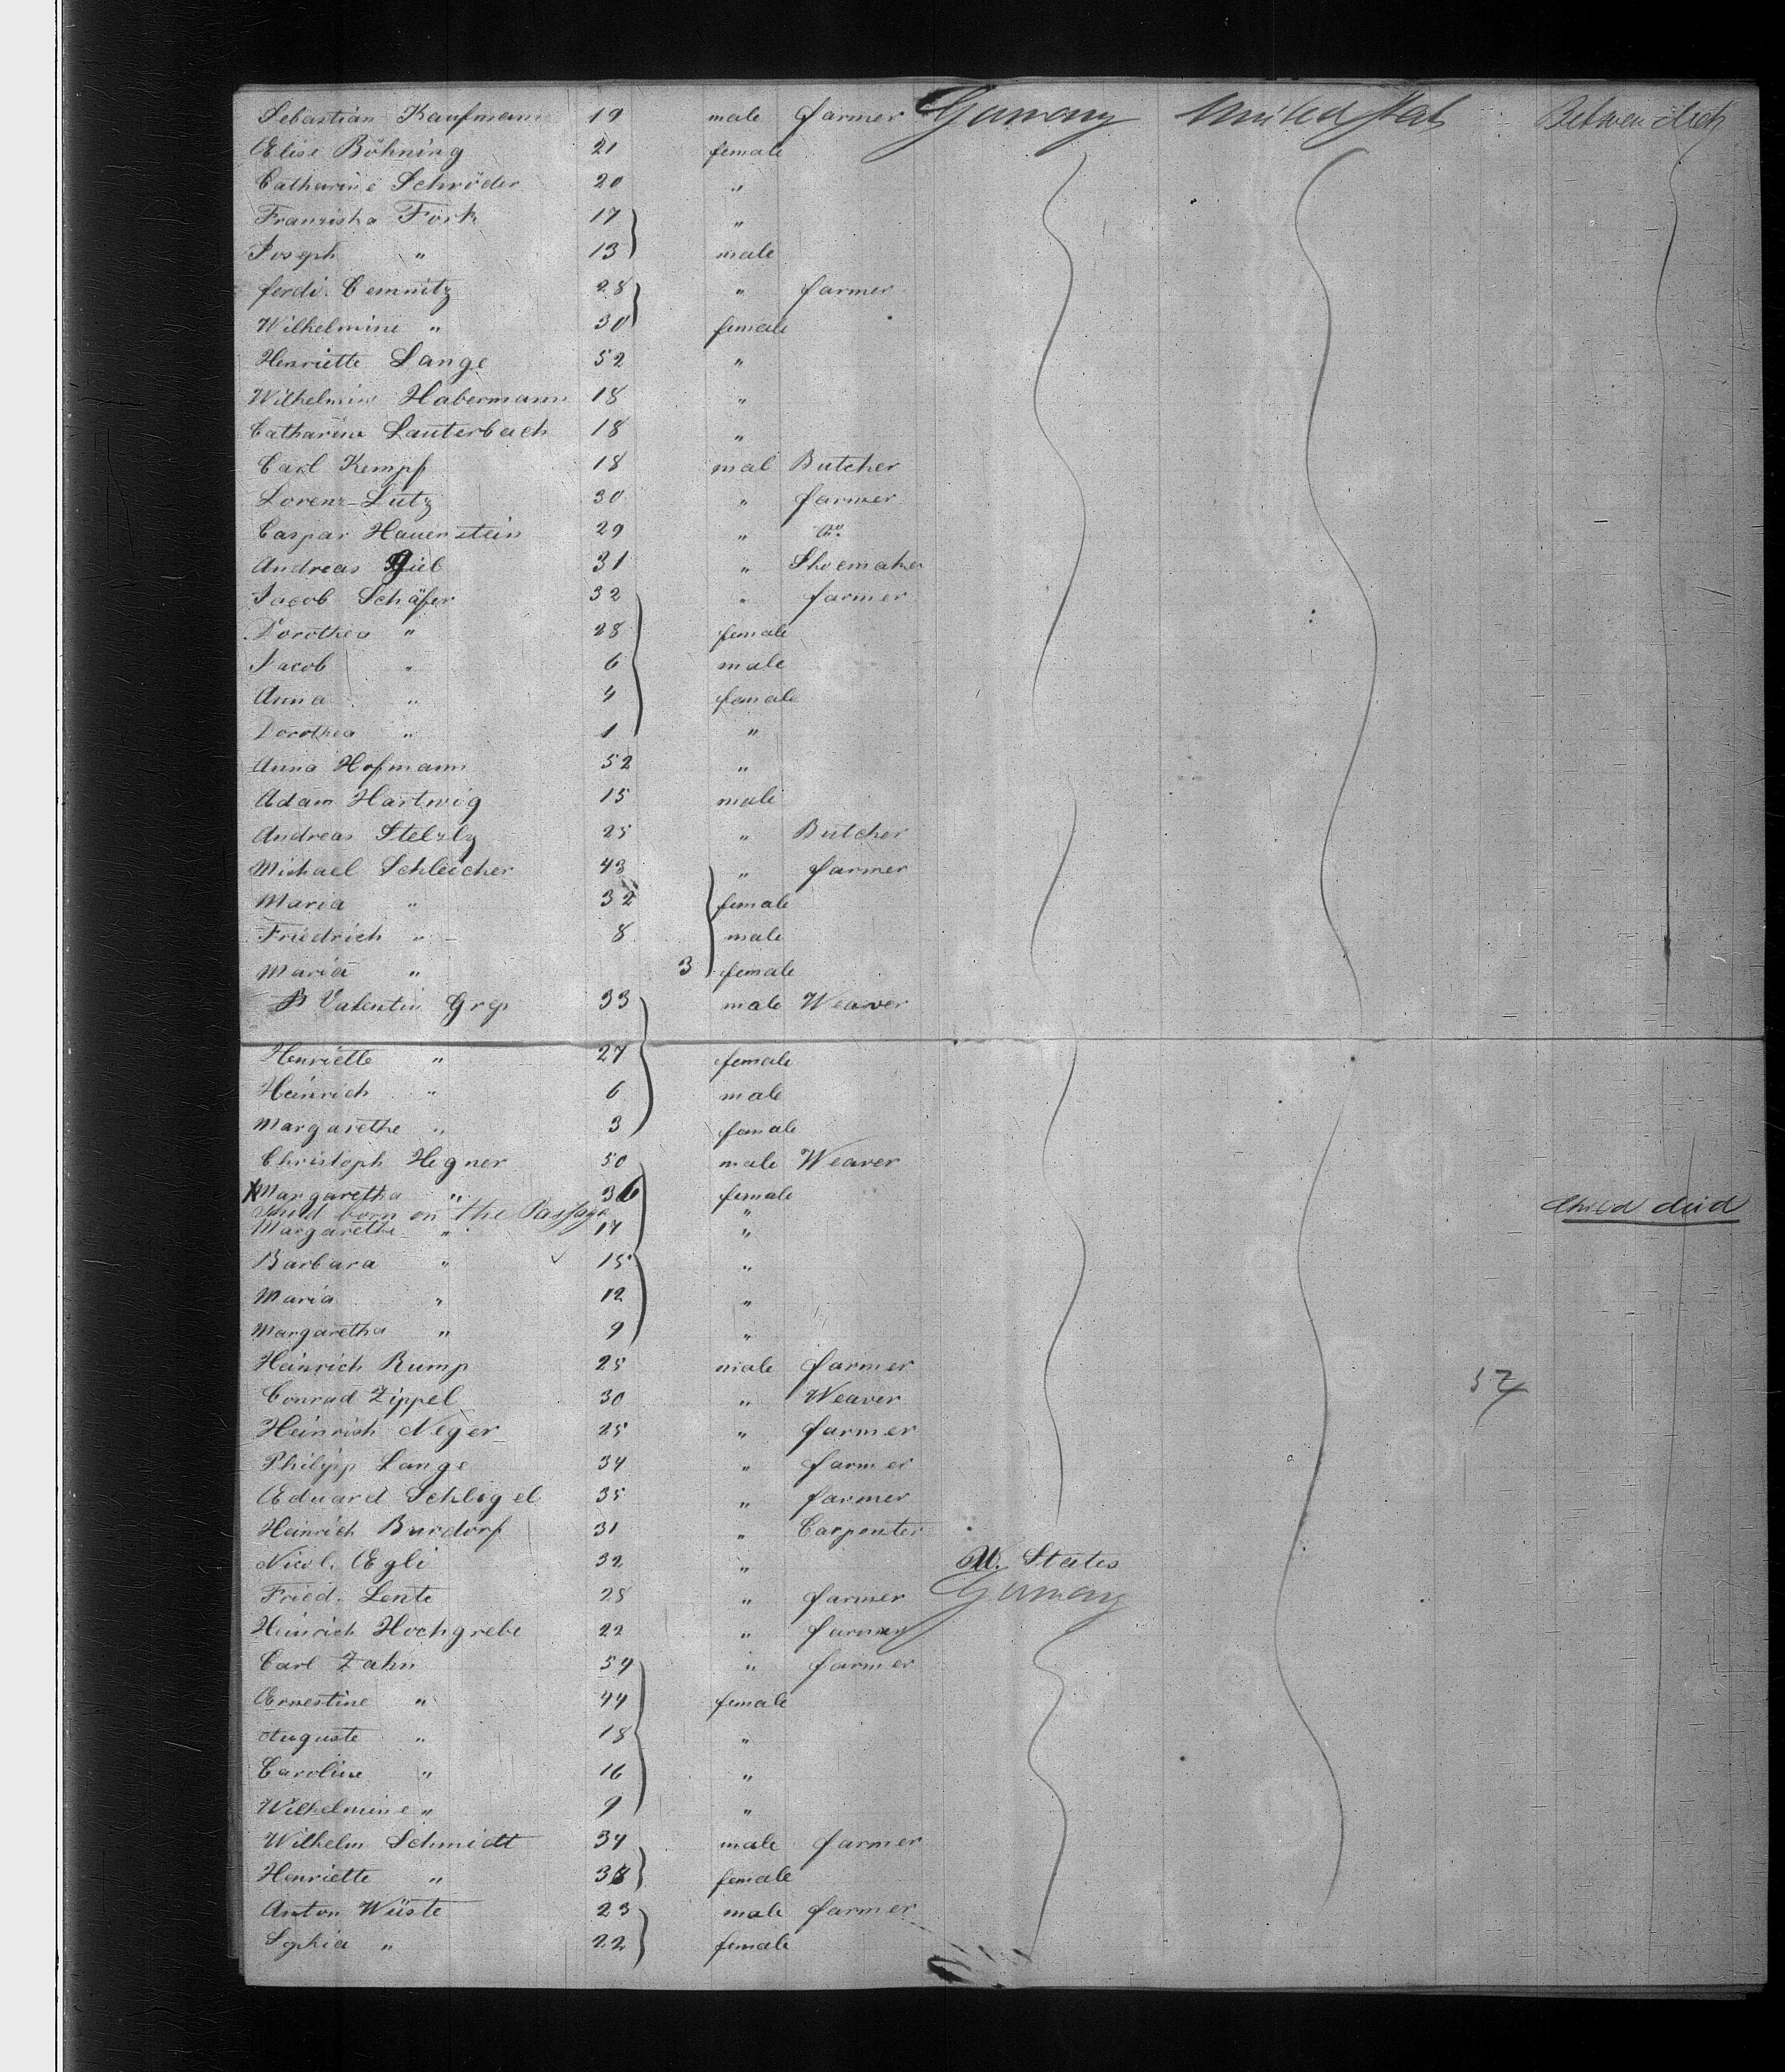 Sebastian Kaufmann 19 male farmer Germany United Stats Between deck
Elise Böhning 21 female
Catharine Schröder 20 "
Franziska Förk 17 "
Joseph " 13 male
ferdi. Cemnitz 28 " farmer
Wilhelmine " 30 female
Henriette Lange 52 "
Wilhelmine Habermann 18 "
Catharine Lauterbach 18 "
Carl Kempf 18 mal Butcher
Lorenz Lutz 30 " farmer
Caspar Hauenstein 29 "
Andreas 31 " Shoemaker
Jacob Schäfer 32 " farmer
Dorothea " 28 female
Jacob " 6 male
Anna " 4 female
Dorothea " 1 "
Anna Hofmann 52 "
Adam Hartwig 15 male
Andreas Stelzly 25 " Butcher
Michael Schleicher 43 " farmer
Maria " 32 female
Friedrich " 8 male
Maria " 3 female
Valentin Grep 33 male Weaver
Henriette " 27 female
Heinrich " 6 male
Margarethe " 3 female
Christoph Hegner 50 male Weaver
X Margaretha " 36 female
Child born on the Passage " Child died
Margarethe " 17 "
Barbara " 15 "
Maria " 12 "
Margaretha " 9 "
Heinrich Rump 25 male farmer
Conrad Zippel 30 " Weaver
57
Heinrich Neger 25 " farmer
Philipp Lange 34 " farmer
Eduard Schlögel 35 " farmer
Heinrich Burdorf 31 " Carpenter
Nicol. Egli 32 " U. States
Fried. Lente 28 " farmer Germany
Heinrich Hochgrebe 22 " farmer
Carl Zahn 54 " farmer
Ernestine " 44 female
Auguste " 18 "
Caroline " 16 "
Wilhelmine " 9 "
Wilhelm Schmidt 34 male farmer
Henriette " 38 female
Anton Wüste 23 male farmer
Sophia " 22 female